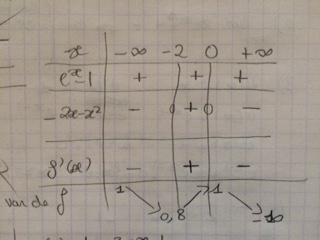 x -∞ -2 0 +∞
e^x-1 + + +
-2x-x² - 0 + 0 -
f'(x) - + -
var de f 1 ↘ 0,8 ↗ 1 ↘